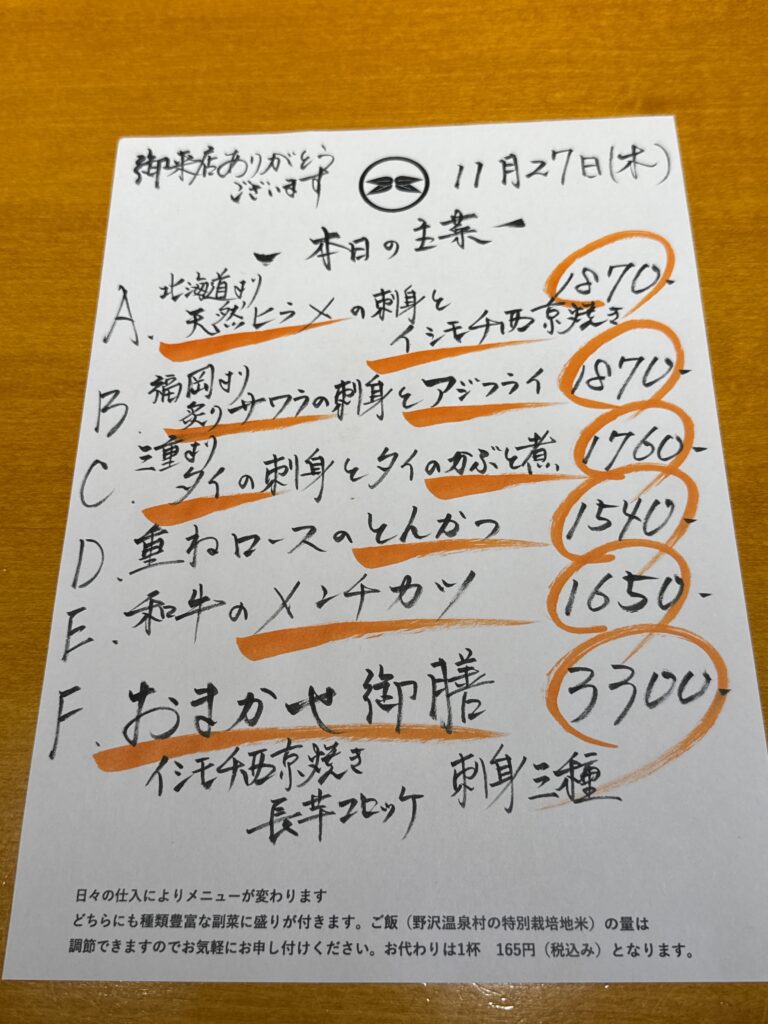 御来店ありがとう
ございます
11月27日(木)
本日の主菜
A. 北海道より
天然ヒラメの刺身と
イシモチ西京焼き
1870-
B. 福岡より
炙りサワラの刺身とアジフライ
1870-
C. 三重より
タイの刺身とタイのかぶと煮
1760-
D. 重ねロースのとんかつ
1540-
E. 和牛のメンチカツ
1650-
F. おまかせ御膳
3300-
イシモチ西京焼き
長芋コロッケ
刺身三種
日々の仕入によりメニューが変わります
どちらにも種類豊富な副菜に盛りが付きます。ご飯（野沢温泉村の特別栽培地米）の量は
調節できますのでお気軽にお申し付けください。お代わりは1杯　165円（税込み）となります。